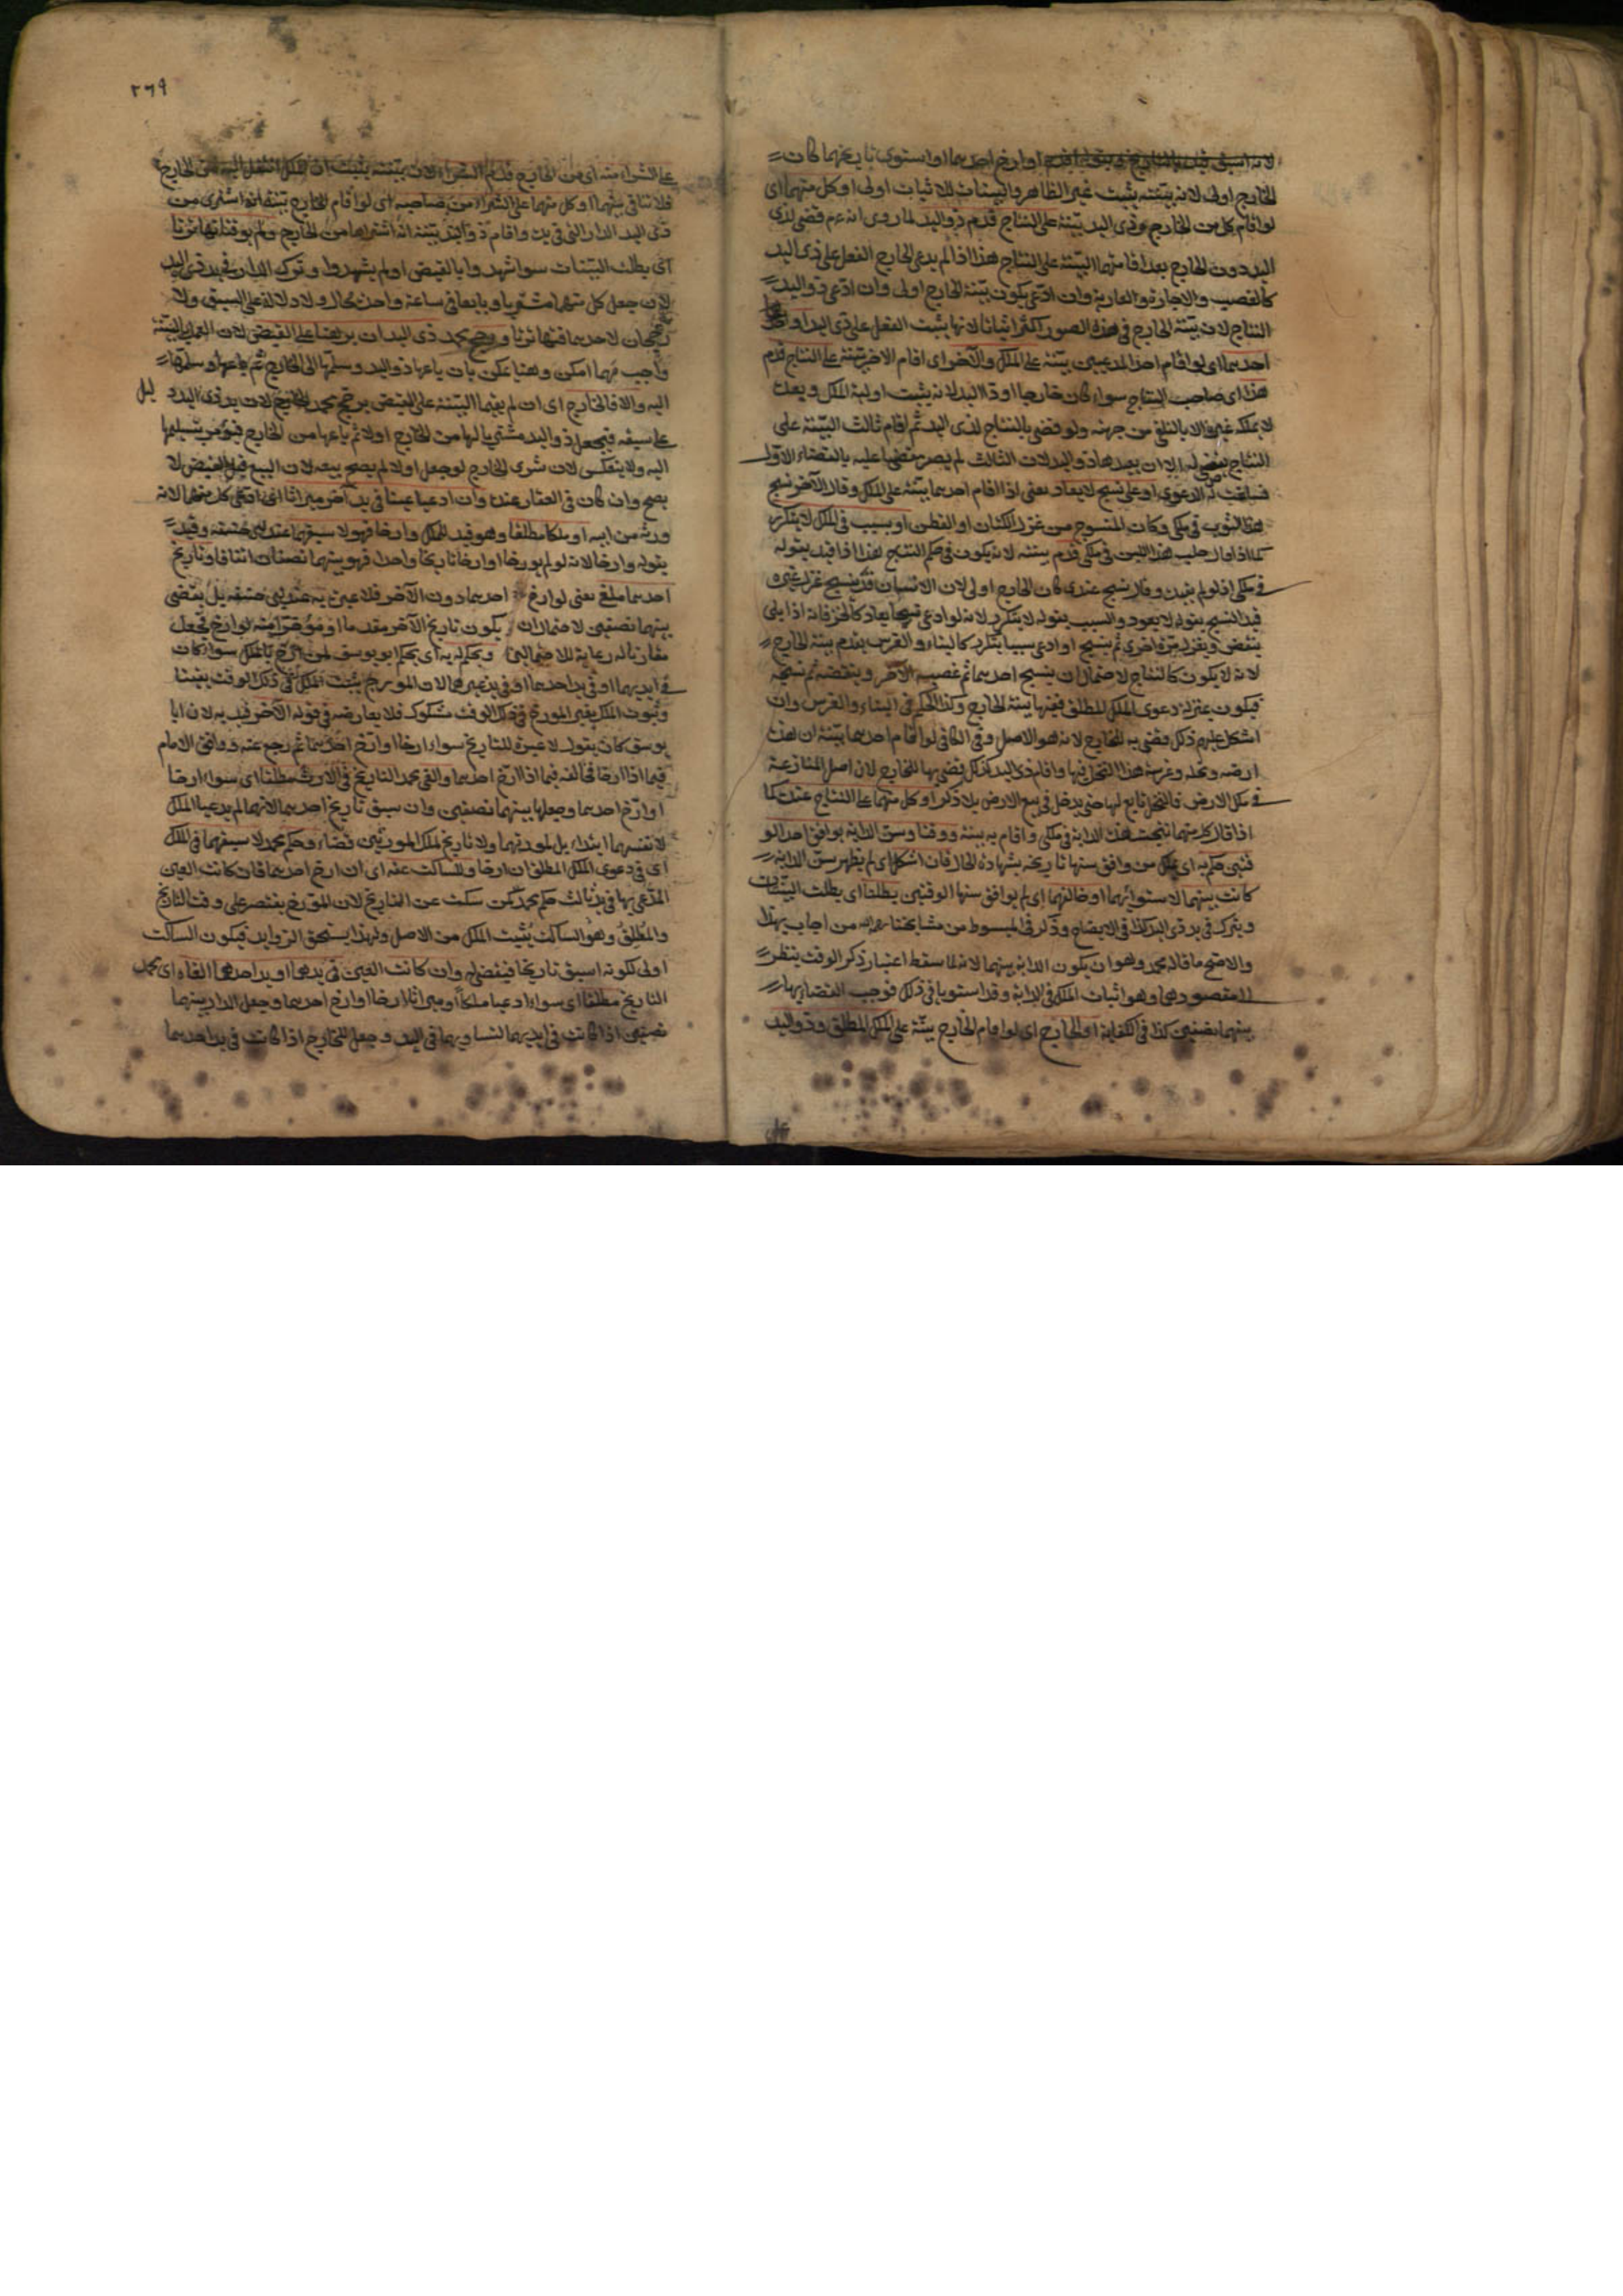 لانه اسبق قيد بالتاريخ اوارخ احدهما او استوى تاريخهما كان
الخارج اولى لانه ببينته يثبت غير الظاهر والبينات للاثبات اولى او كل منهما اى
لو اقام كل من الخارج وذى اليد بينة على النتاج قدم ذو اليد لما روى انه عم قضى لذى
اليد دون الخارج بعد اقامتهما البينة على النتاج هذا اذا لم يدعى الخارج الفعل على ذى اليد
كالغصب والاجارة والعارية وان ادعى يكون بينة الخارج اولى وان ادعى ذو اليد
النتاج لان بينة الخارج فى هذه الصور اكثر اثباتا لانها يثبت الفعل على ذى اليد او
احدهما اى لو اقام احد المدعيين بينة على الملك والآخر اى اقام الاخر بينة على النتاج قدم
هذا اى صاحب النتاج سواء كان خارجا او ذا اليد لانه يثبت اولية الملك وبعده
لا يملكه غيره الا بالتلقى من جهته ولو قضى بالنتاج لذى اليد ثم اقام ثالث البينة على
النتاج يقضى له الا ان يعيدها ذو اليد لان الثالث لم يصر مقضيا عليه بالقضاء الاول
الدعوى او على نسج لا يعاد يعنى اذا اقام احدهما بينة على الملك وقال الآخر نسج
هذا الثوب فى ملكى وكان المنسوج من غزل الكتان او القطن او بسبب فى الملك لا يتكرر
كما اذا قال حلب هذا اللبن فى ملكى قدم بينته لانه يكون فى حكم النتج هذا اذا قيد بقوله
فى ملكى اذ لو لم يقيد وقال نسج عندى كان الخارج اولى لان الانسان قد ينسج غزل غيره
قيد النسج بقوله لا يعود والسبب بقوله لا يتكرر لانه لو ادعى نسجا يعاد كالخز فانه اذا بلى
ينقض ويغزل مرة اخرى ثم ينسج او ادعى سببا يتكرر كالبناء والغرس يقدم بينة الخارج
لانه لا يكون كالنتاج لاحتمال ان ينسج احدهما ثم غصبه الآخر وينقضه ثم نسجه
فيكون بمنزلة دعوى الملك المطلق فيها بينة الخارج وكذا الحكم فى البناء والغرس وان
اشكل عليهم ذلك قضى به للخارج لانه هو الاصل وفى الكافى لو اقام احدهما بينة ان هذه
ارضه ونخله وغرسه هذا النخل فيها واقام ذو اليد كذلك قضى بها للخارج لان اصل المنازعة
فى ملك الارض فالنخل تابع لها حتى يدخل فى بيع الارض بلا ذكر او كل منهما على النتاج عنده كما
اذا قال كل منهما نتجت هذه الدابة فى ملكى واقام به بينة ووقتا وسن الدابة يوافق احد الو
قتين حكم به اى بالملك من وافق سنها تاريخه بشهادة الحال فان اشكل اى لم يظهر سن الدابة
كانت بينهما لاستوائهما او خالفهما اى لم يوافق سنها الوقتين بطلتا اى بطلت البينتان
ويترك فى يد ذى اليد كذا فى الايضاح وذكر فى المبسوط من مشايخنا رحمه الله من اجاب بهذا
والاصح ما قاله محمد وهو ان يكون الدابة بينهما لانه لما سقط اعتبار ذكر الوقت ينظر
لمقصودهما وهو اثبات الملك فى الدابة وقد استويا فى ذلك فوجب القضاء بها
بينهما نصفين كذا فى الكفاية او الخارج اى لو اقام الخارج بينة على الملك المطلق وذو اليد
٢٦٩
على الشراء منه اى من الخارج قدم الشراء لان ببينته يثبت ان الملك انتقل اليه من الخارج
فلا تنافى بينهما او كل منهما على الشراء من صاحبه اى لو اقام الخارج بينة انه اشترى من
ذى اليد الدار التى فى يده واقام ذو اليد بينة انه اشتراها من الخارج ولم يوقتا تهاترتا
اى بطلت البينات سواء شهدوا بالقبض او لم يشهدوا وترك الدار فى يد ذى اليد
لان جعل كل منهما مشتريا وبايعا فى ساعة واحدة محال ولا دلالة على السبق ولا
رجحان لاحدهما فتهاترتا ورجح محمد ذى اليد ان برهنا على القبض لان العمل بالبينة
واجب مهما امكن وهنا يمكن بان باعها ذو اليد وسلمها الى الخارج ثم باعها وسلمها
اليه والا فالخارج اى ان لم يقيما البينة على القبض يرجح محمد الخارج لان يد ذى اليد دليل
على سبقه فيجعل ذو اليد مشتريا لها من الخارج اولا ثم باعها من الخارج فيؤمر بتسليمها
اليه ولا ينعكس لان شرى الخارج لو جعل اولا لم يصح بيعه لان البيع قبل القبض لا
يصح وان كان فى العقار عنده وان ادعيا عينا فى يد آخر ميراثا اى ادعى كل منهما لانه
ورثه من ابيه او ملكا مطلقا وهو قيد للملك وارخا فهو لاسبقهما عند ابى حنيفة وقيد
بقوله وارخا لانه لو لم يورخا او ارخا تاريخا واحدا فهو بينهما نصفان اتفاقا وتاريخ
احدهما ملغ يعنى لو ارخ احدهما دون الآخر فلا عبرة به عند ابى حنيفة بل يقضى
بينهما نصفين لاحتمال ان يكون تاريخ الآخر مقدما او مؤخرا منه لو ارخ فجعل
مقارنا له رعاية للاحتمالين ويحكم به اى يحكم ابو يوسف لمن ارخ بالملك سواء كان
فى ايديهما او فى يد احدهما او فى يد غيرهما لان المورخ يثبت الملك فى ذلك الوقت يقينا
وثبوت الملك بغير المورخ فى ذلك الوقت مشكوك فلا يعارضه فى قوله الآخر قيد به لان ابا
يوسف كان يقول لا عبرة للتاريخ سواء ارخا او ارخ احدهما ثم رجع عنه ووافق الامام
فيما اذا ارخا فخالفه فيما اذا ارخ احدهما والغى محمد التاريخ فى الارث مطلقا اى سواء ارخا
او ارخ احدهما وجعلها بينهما نصفين وان سبق تاريخ احدهما لانهما لم يدعيا الملك
لانفسهما ابتداء بل لمورثهما ولا تاريخ لملك المورثين قضاء وحكم محمد لاسبقهما فى الملك
اى فى دعوى الملك المطلق ان ارخا وللساكت عنه اى ان ارخ احدهما فان كانت العين
المدعى بها فى يد ثالث حكم محمد لمن سكت عن التاريخ لان المورخ يقتصر على وقت التاريخ
والمطلق وهو الساكت يثبت الملك من الاصل ولهذا يستحق الزوايد فيكون الساكت
اولى لكونه اسبق تاريخا فيقضى له وان كانت العين فى يدهما او يد احدهما الغاه اى محمد
التاريخ مطلقا اى سواء ادعيا ملكا او ميراثا ارخا او ارخ احدهما وجعل الدار بينهما
نصفين اذا كانت فى ايديهما لتساويهما فى اليد وجعل للخارج اذا كانت فى يد احدهما